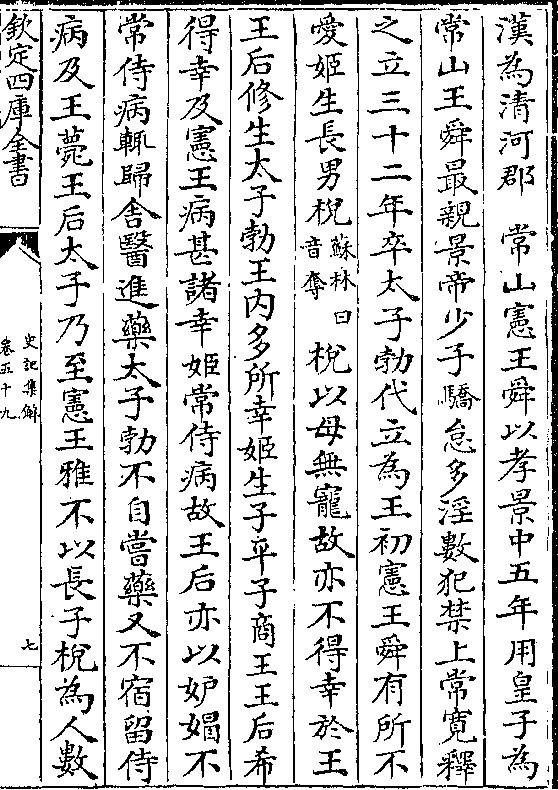 漢為清河郡　常山憲王舜以孝景中五年用皇子為
常山王舜最親景帝少子驕怠多淫數犯禁上常寬釋
之立三十二年卒太子勃代立為王初憲王舜有所不
愛姬生長男梲蘇林曰音奪梲以母無寵故亦不得幸於王
王后修生太子勃王內多所幸姬生子平子商王王后希
得幸及憲王病甚諸幸姬常侍病故王后亦以妒媢不
常侍病輒歸舍醫進藥太子勃不自嘗藥又不宿留侍
病及王薨王后太子乃至憲王雅不以長子梲為人數
欽定四庫全書
史記集解
卷五十九
七